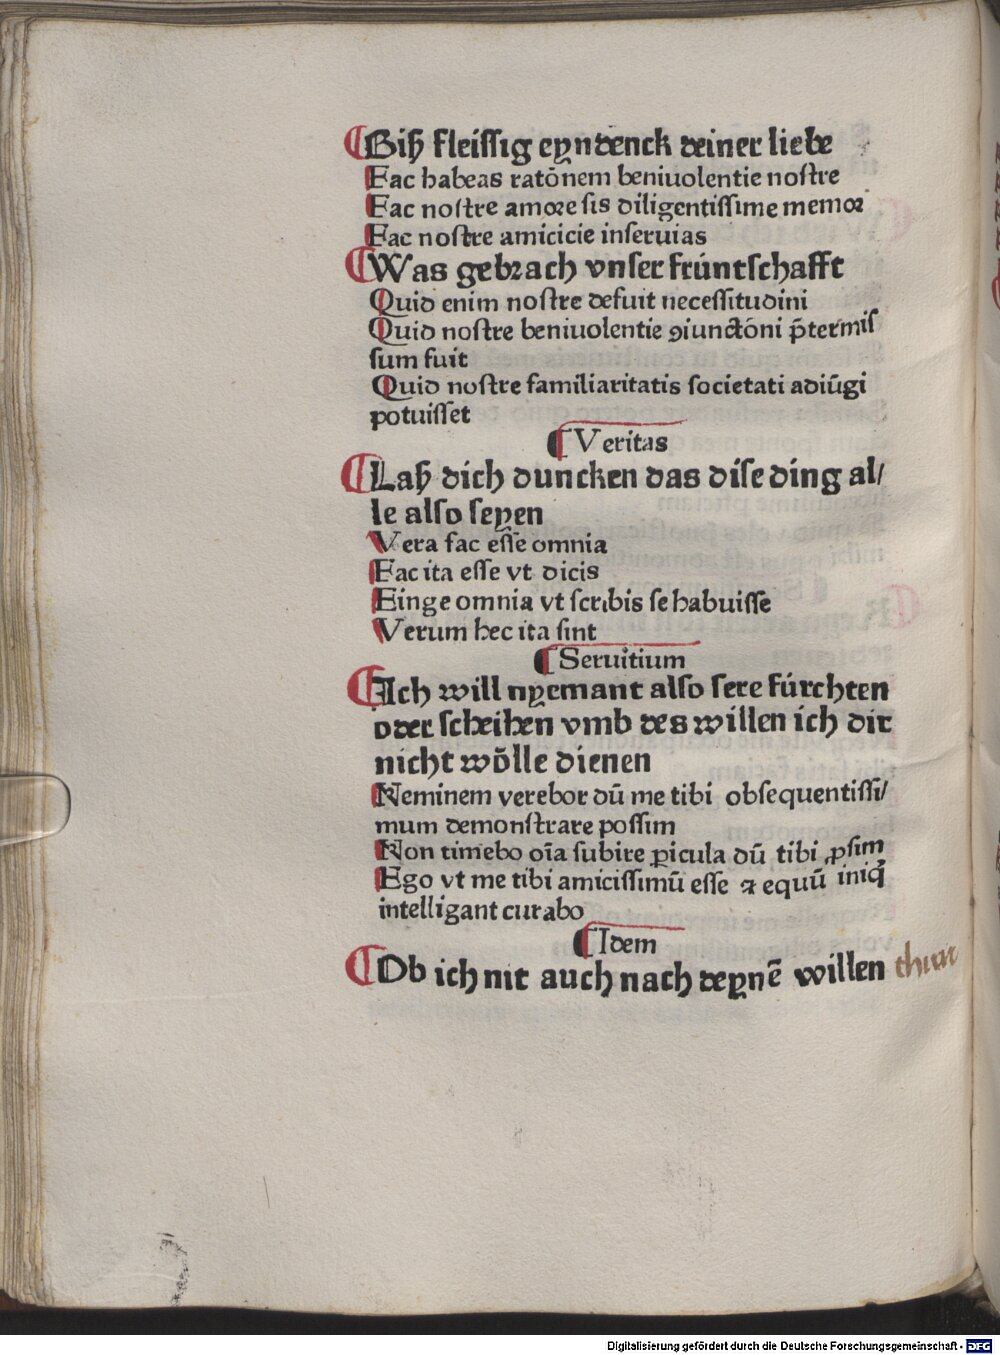 Biß fleissig eyndenck deiner liebe
Fac habeas ratōnem beniuolentie nostre
Fac nostre amore sis diligentissime memor
Fac nostre amicicie inseruias
Was gebrach vnser früntschafft
Quid enim nostre defuit necessitudini
Quid nostre beniuolentie ꝯiunctōni p̄termis
sum fuit
Quid nostre familiaritatis societati adiūgi
potuisset
Veritas
Laß dich duncken das dise ding al/
le also seyen
Vera fac esse omnia
Fac ita esse vt dicis
Finge omnia vt scribis se habuisse
Verum hec ita sint
Seruitium
Ich will nyemant also sere fürchten
oder scheihen vmb des willen ich dir
nicht wölle dienen
Neminem verebor dū me tibi obsequentissi/
mum demonstrare possim
Non timebo oīa subire ꝑicula dū tibi ꝓsim
Ego vt me tibi amicissimū esse ⁊ equū iniqͥ
intelligant curabo
Idem
Ob ich nit auch nach deynē willen
Digitalisierung gefördert durch die Deutsche Forschungsgemeinschaft - DFG